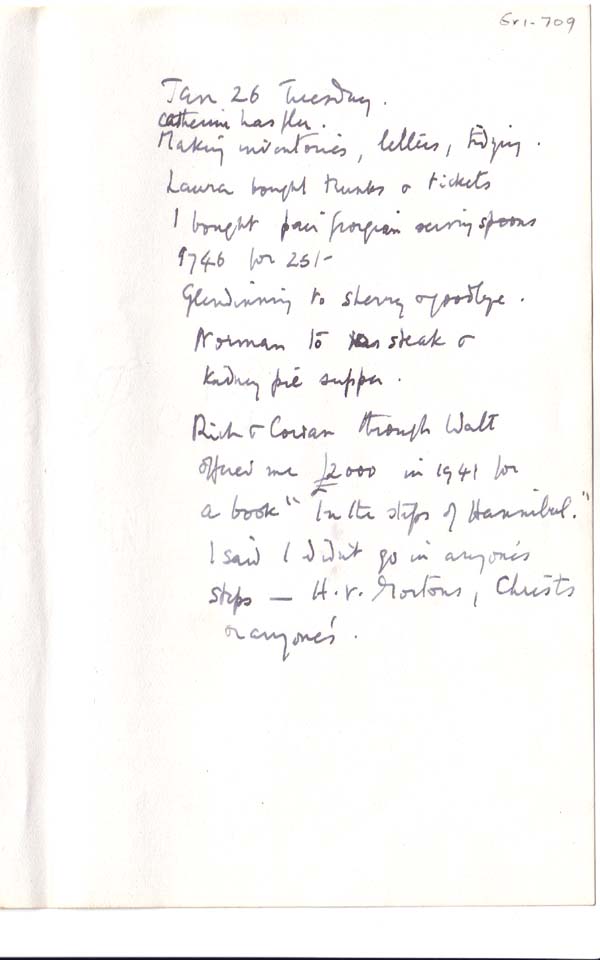 Gr1-709
Jan 26 Tuesday.
Catherine has flu.
Making inventories, letters, tidying.
Laura bought trunks & tickets
I bought pair georgian serving spoons
1746 for 25/-
Glendinning to sherry & goodbye.
Norman to steak &
kidney pie supper.
Rich & Cowan through Walt
offered me £2000 in 1941 for
a book "In the steps of Hannibal."
I said I didn't go in anyone's
steps — H.V. Mortons, Christs
or anyone's.